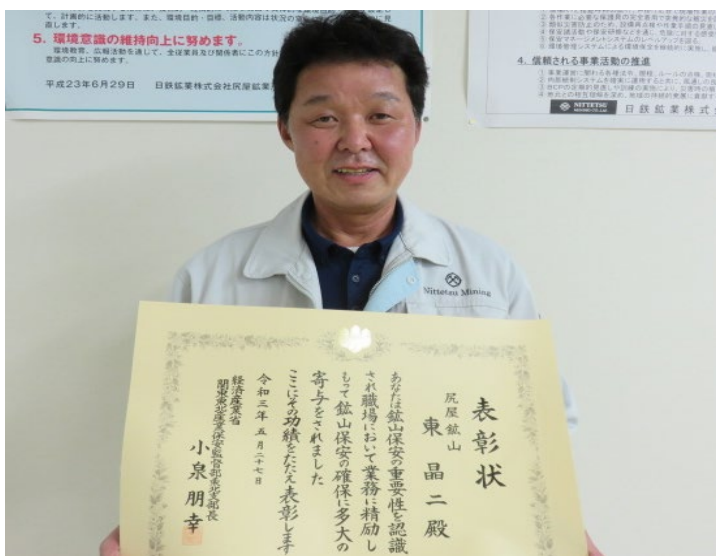 て、計画的に活動します。また、環境目的・目標、活動内容は状況の
直します。
5. 環境意識の維持向上に努めます。
環境教育、広報活動を通して、全従業員及び関係者にこの方針
意識の向上に努めます。
平成23年6月29日 日鉄鉱業株式会社尻屋鉱業
4. 信頼される事業活動の推進
NITTETSU
日鉄鉱業株式
Nittetsu Mining
表彰状
尻屋鉱山
東晶二殿
あなたは鉱山保安の重要性を認識
され職場において業務に精励し
もって鉱山保安の確保に多大の
寄与をされました
ここにその功績をたたえ表彰します
令和三年五月二十七日
経済産業省
関東東北産業保安監督部東北支部長
小泉朋幸